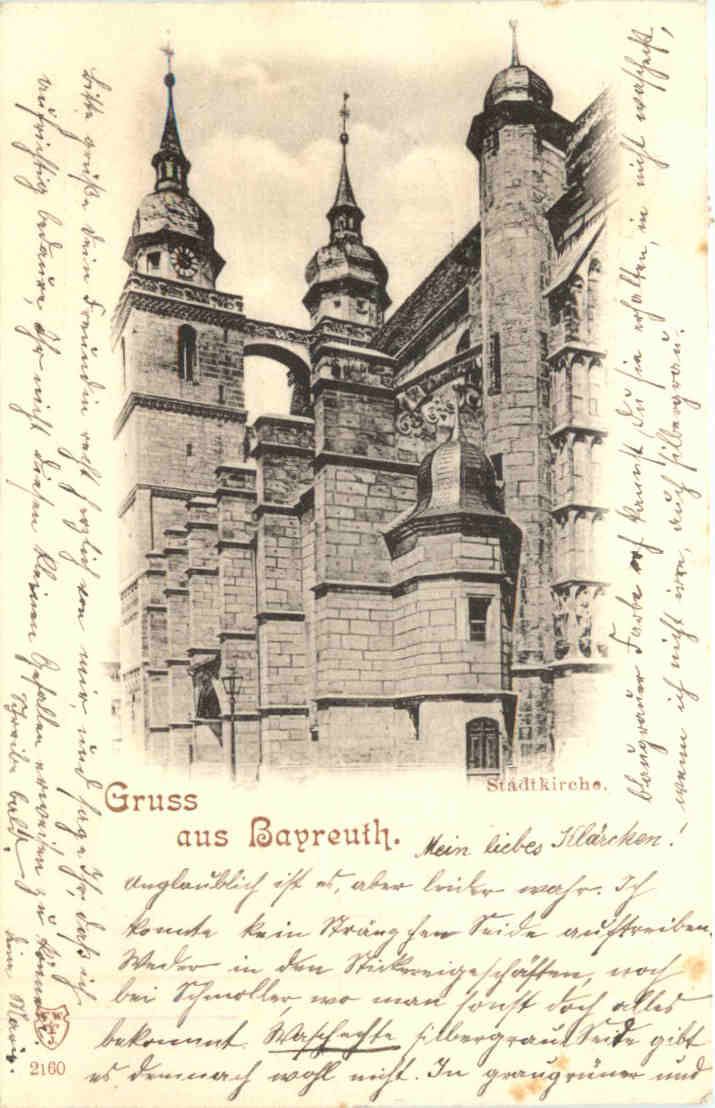 Stadtkirche.
Gruss
aus Bayreuth.
Mein liebes Klärchen!
Unglaublich ist es, aber leider wahr. Ich
konnte kein Strängchen Seide auftreiben.
Weder in den Stickereigeschäften, noch
bei Schmoller, wo man sonst doch alles
bekommt. Waschechte silbergraue Seide gibt
es demnach wohl nicht. In graugrüner und
blaugrauer Farbe kannst Du sie erhalten, in nicht waschecht,
wenn ich nicht irre, auch silbergrau.
Bitte grüße Deine Freundin recht herzlich von mir, und sage Ihr, daß ich
aufrichtig bedaure, Ihr nicht diesen kleinen Gefallen erweisen zu können.
Schreibe bald!
Deine Marie.
2160